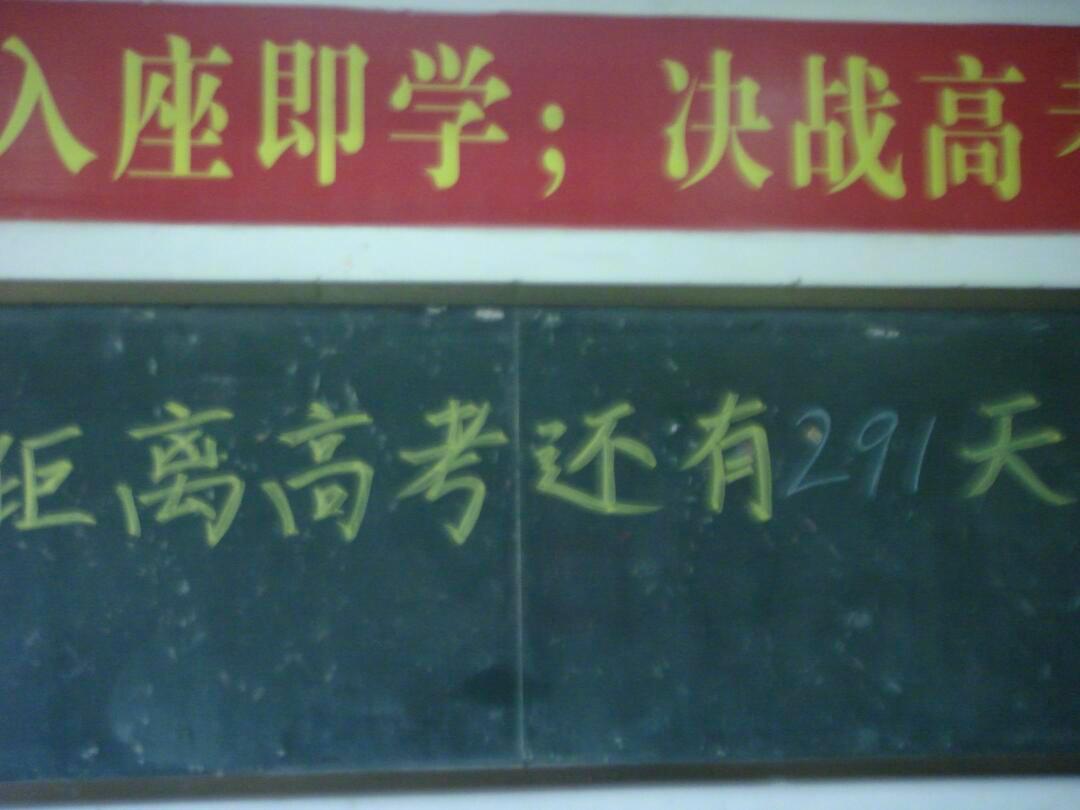 入座即学；决战高考
距离高考还有291天